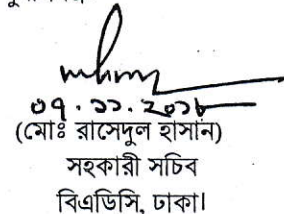 ০৭.১১.২০১৮
(মোঃ রাসেদুল হাসান)
সহকারী সচিব
বিএডিসি, ঢাকা।